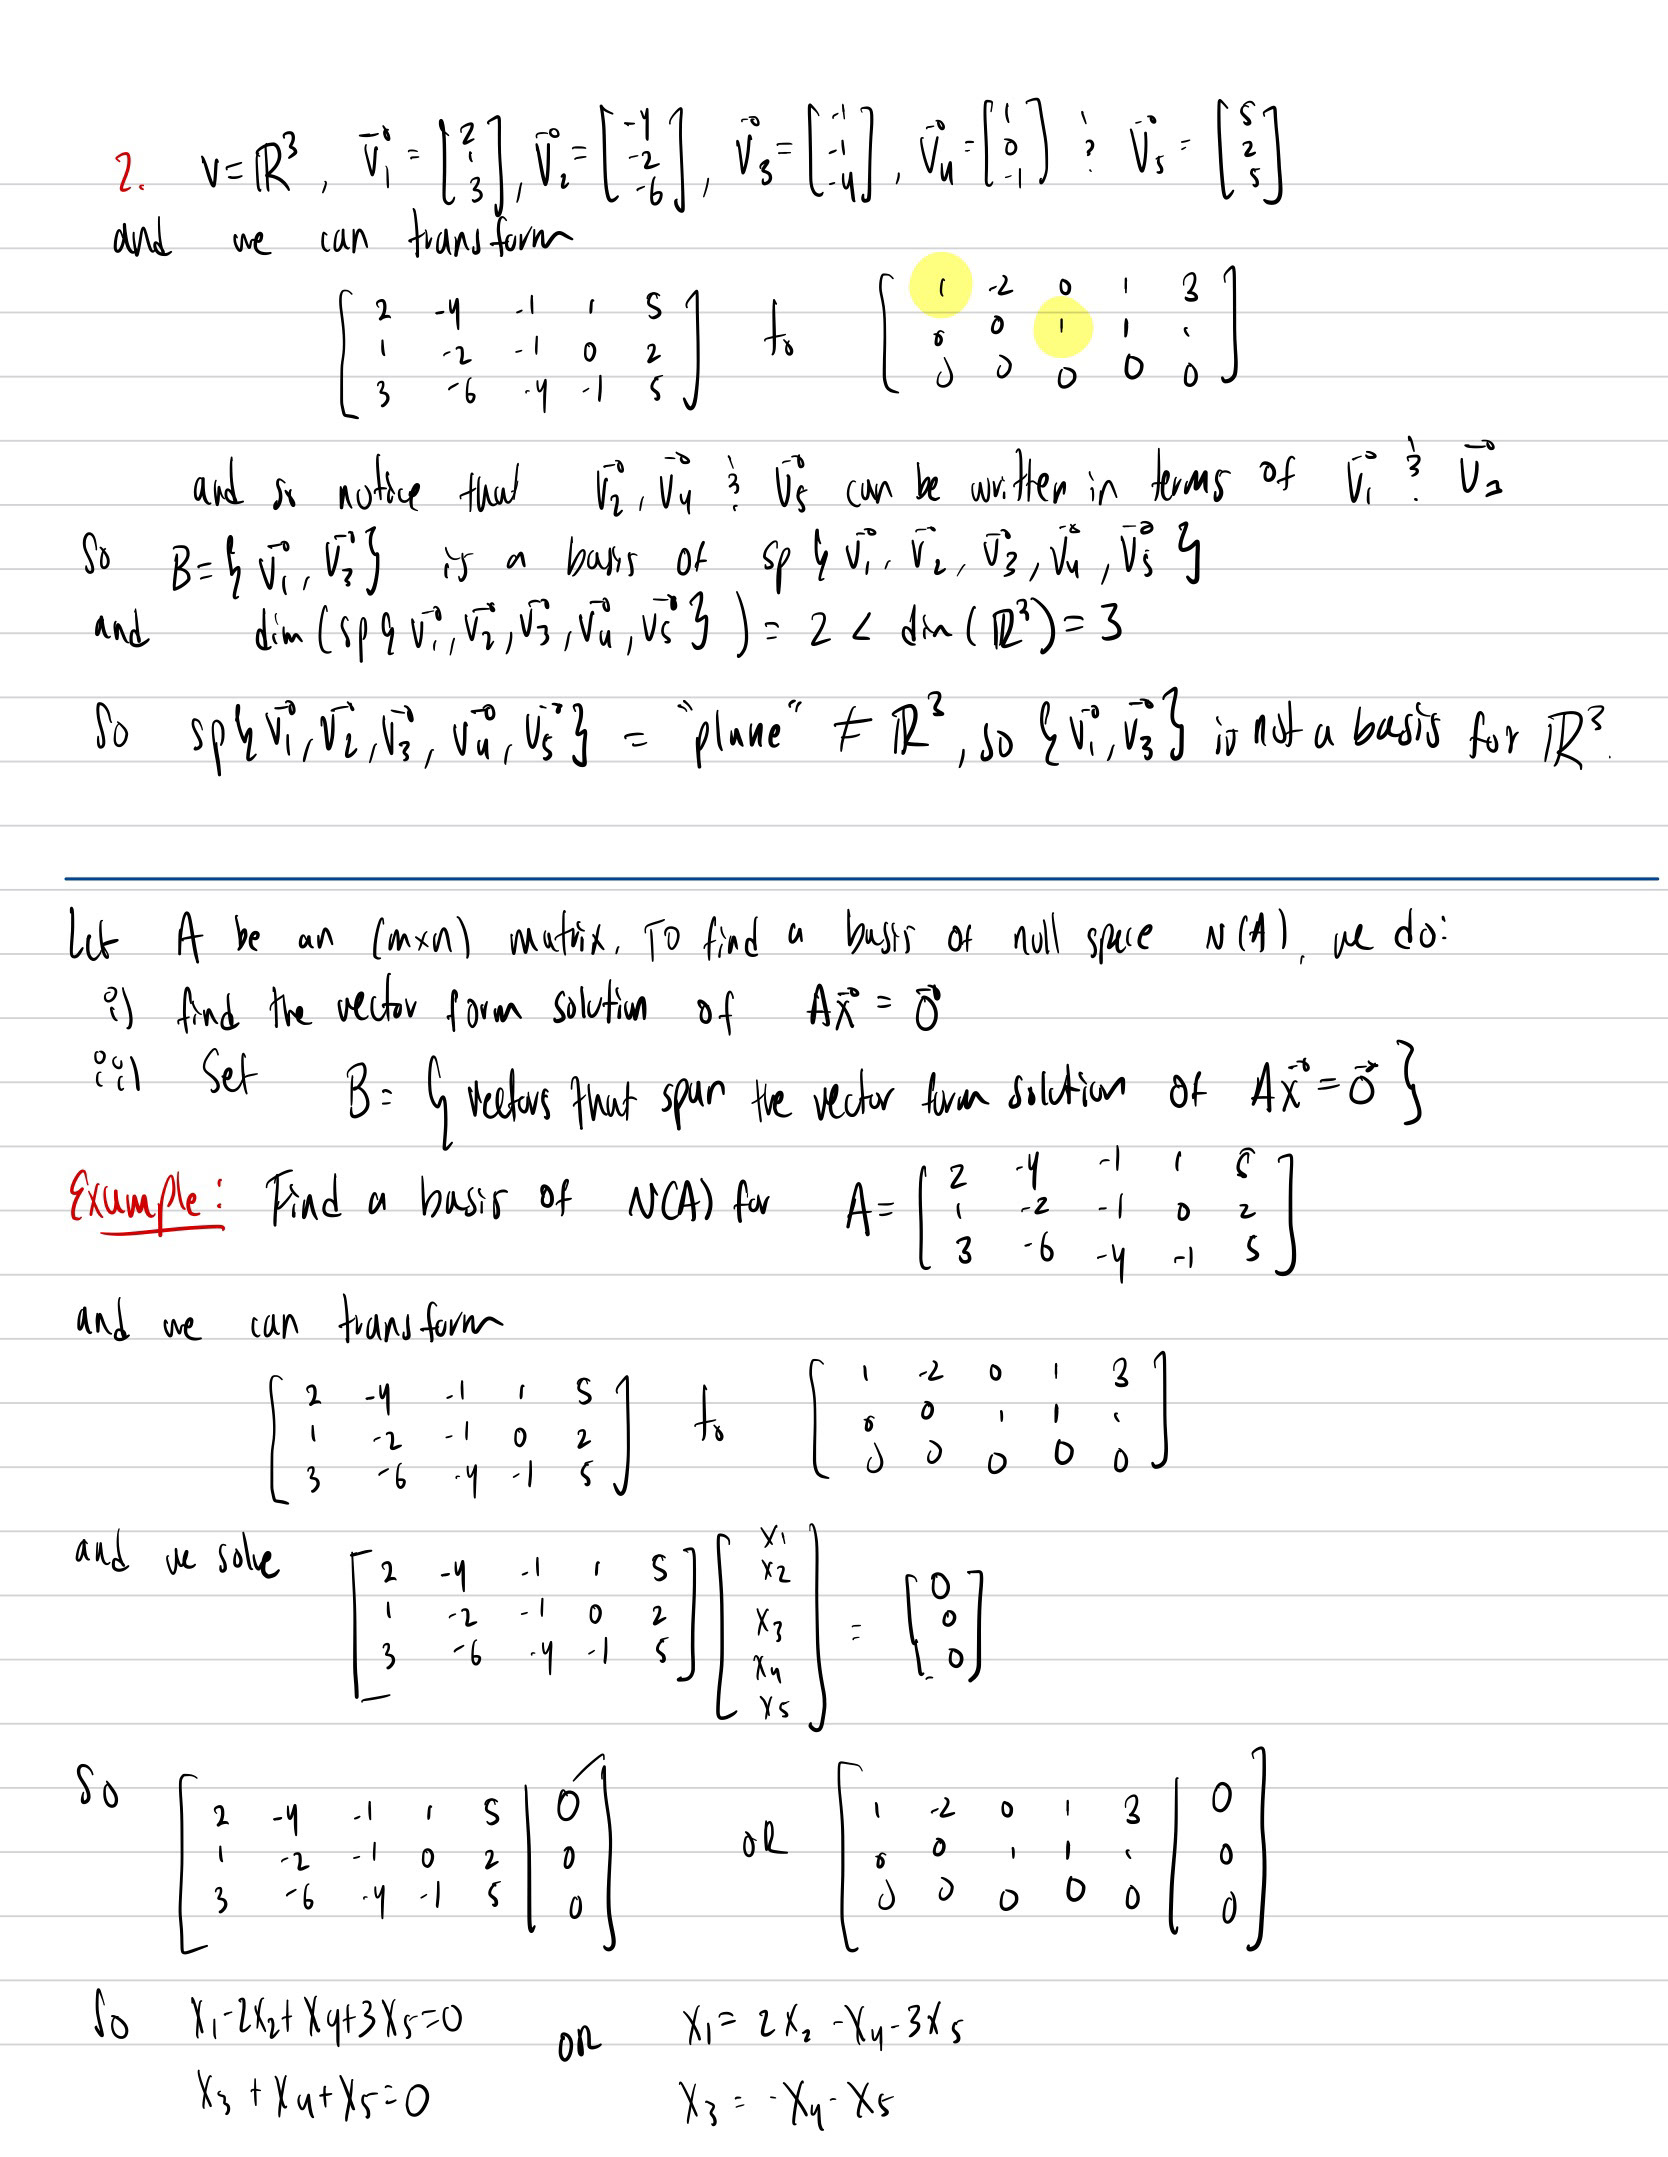 2. V=ℝ³, v⃗₁ = [2 1 3], v⃗₂ = [-4 -2 -6], v⃗₃ = [-1 -1 -4], v⃗₄ = [1 0 -1] & v⃗₅ = [5 2 5]
and we can transform
[2 -4 -1 1 5] to [1 -2 0 1 3]
[1 -2 -1 0 2] [0 0 1 1 1]
[3 -6 -4 -1 5] [0 0 0 0 0]
and so notice that v⃗₂, v⃗₄ & v⃗₅ can be written in terms of v⃗₁ & v⃗₃
So B={v⃗₁, v⃗₃} is a basis of sp{v⃗₁, v⃗₂, v⃗₃, v⃗₄, v⃗₅}
and dim(sp{v⃗₁, v⃗₂, v⃗₃, v⃗₄, v⃗₅}) = 2 < dim(ℝ³) = 3
So sp{v⃗₁, v⃗₂, v⃗₃, v⃗₄, v⃗₅} = "plane" ≠ ℝ³, so {v⃗₁, v⃗₃} is not a basis for ℝ³.
Let A be an (m×n) matrix. To find a basis of null space N(A), we do:
i) find the vector form solution of Ax⃗ = 0⃗
ii) Set B = {vectors that span the vector form solution of Ax⃗ = 0⃗}
Example: Find a basis of N(A) for A = [2 -4 -1 1 5]
[1 -2 -1 0 2]
[3 -6 -4 -1 5]
and we can transform
[2 -4 -1 1 5] to [1 -2 0 1 3]
[1 -2 -1 0 2] [0 0 1 1 1]
[3 -6 -4 -1 5] [0 0 0 0 0]
and we solve [2 -4 -1 1 5] [x₁ x₂ x₃ x₄ x₅] = [0 0 0]
[1 -2 -1 0 2]
[3 -6 -4 -1 5]
So [2 -4 -1 1 5 | 0] OR [1 -2 0 1 3 | 0]
[1 -2 -1 0 2 | 0] [0 0 1 1 1 | 0]
[3 -6 -4 -1 5 | 0] [0 0 0 0 0 | 0]
So x₁-2x₂+x₄+3x₅=0 OR x₁ = 2x₂ -x₄-3x₅
x₃+x₄+x₅=0 x₃ = -x₄-x₅